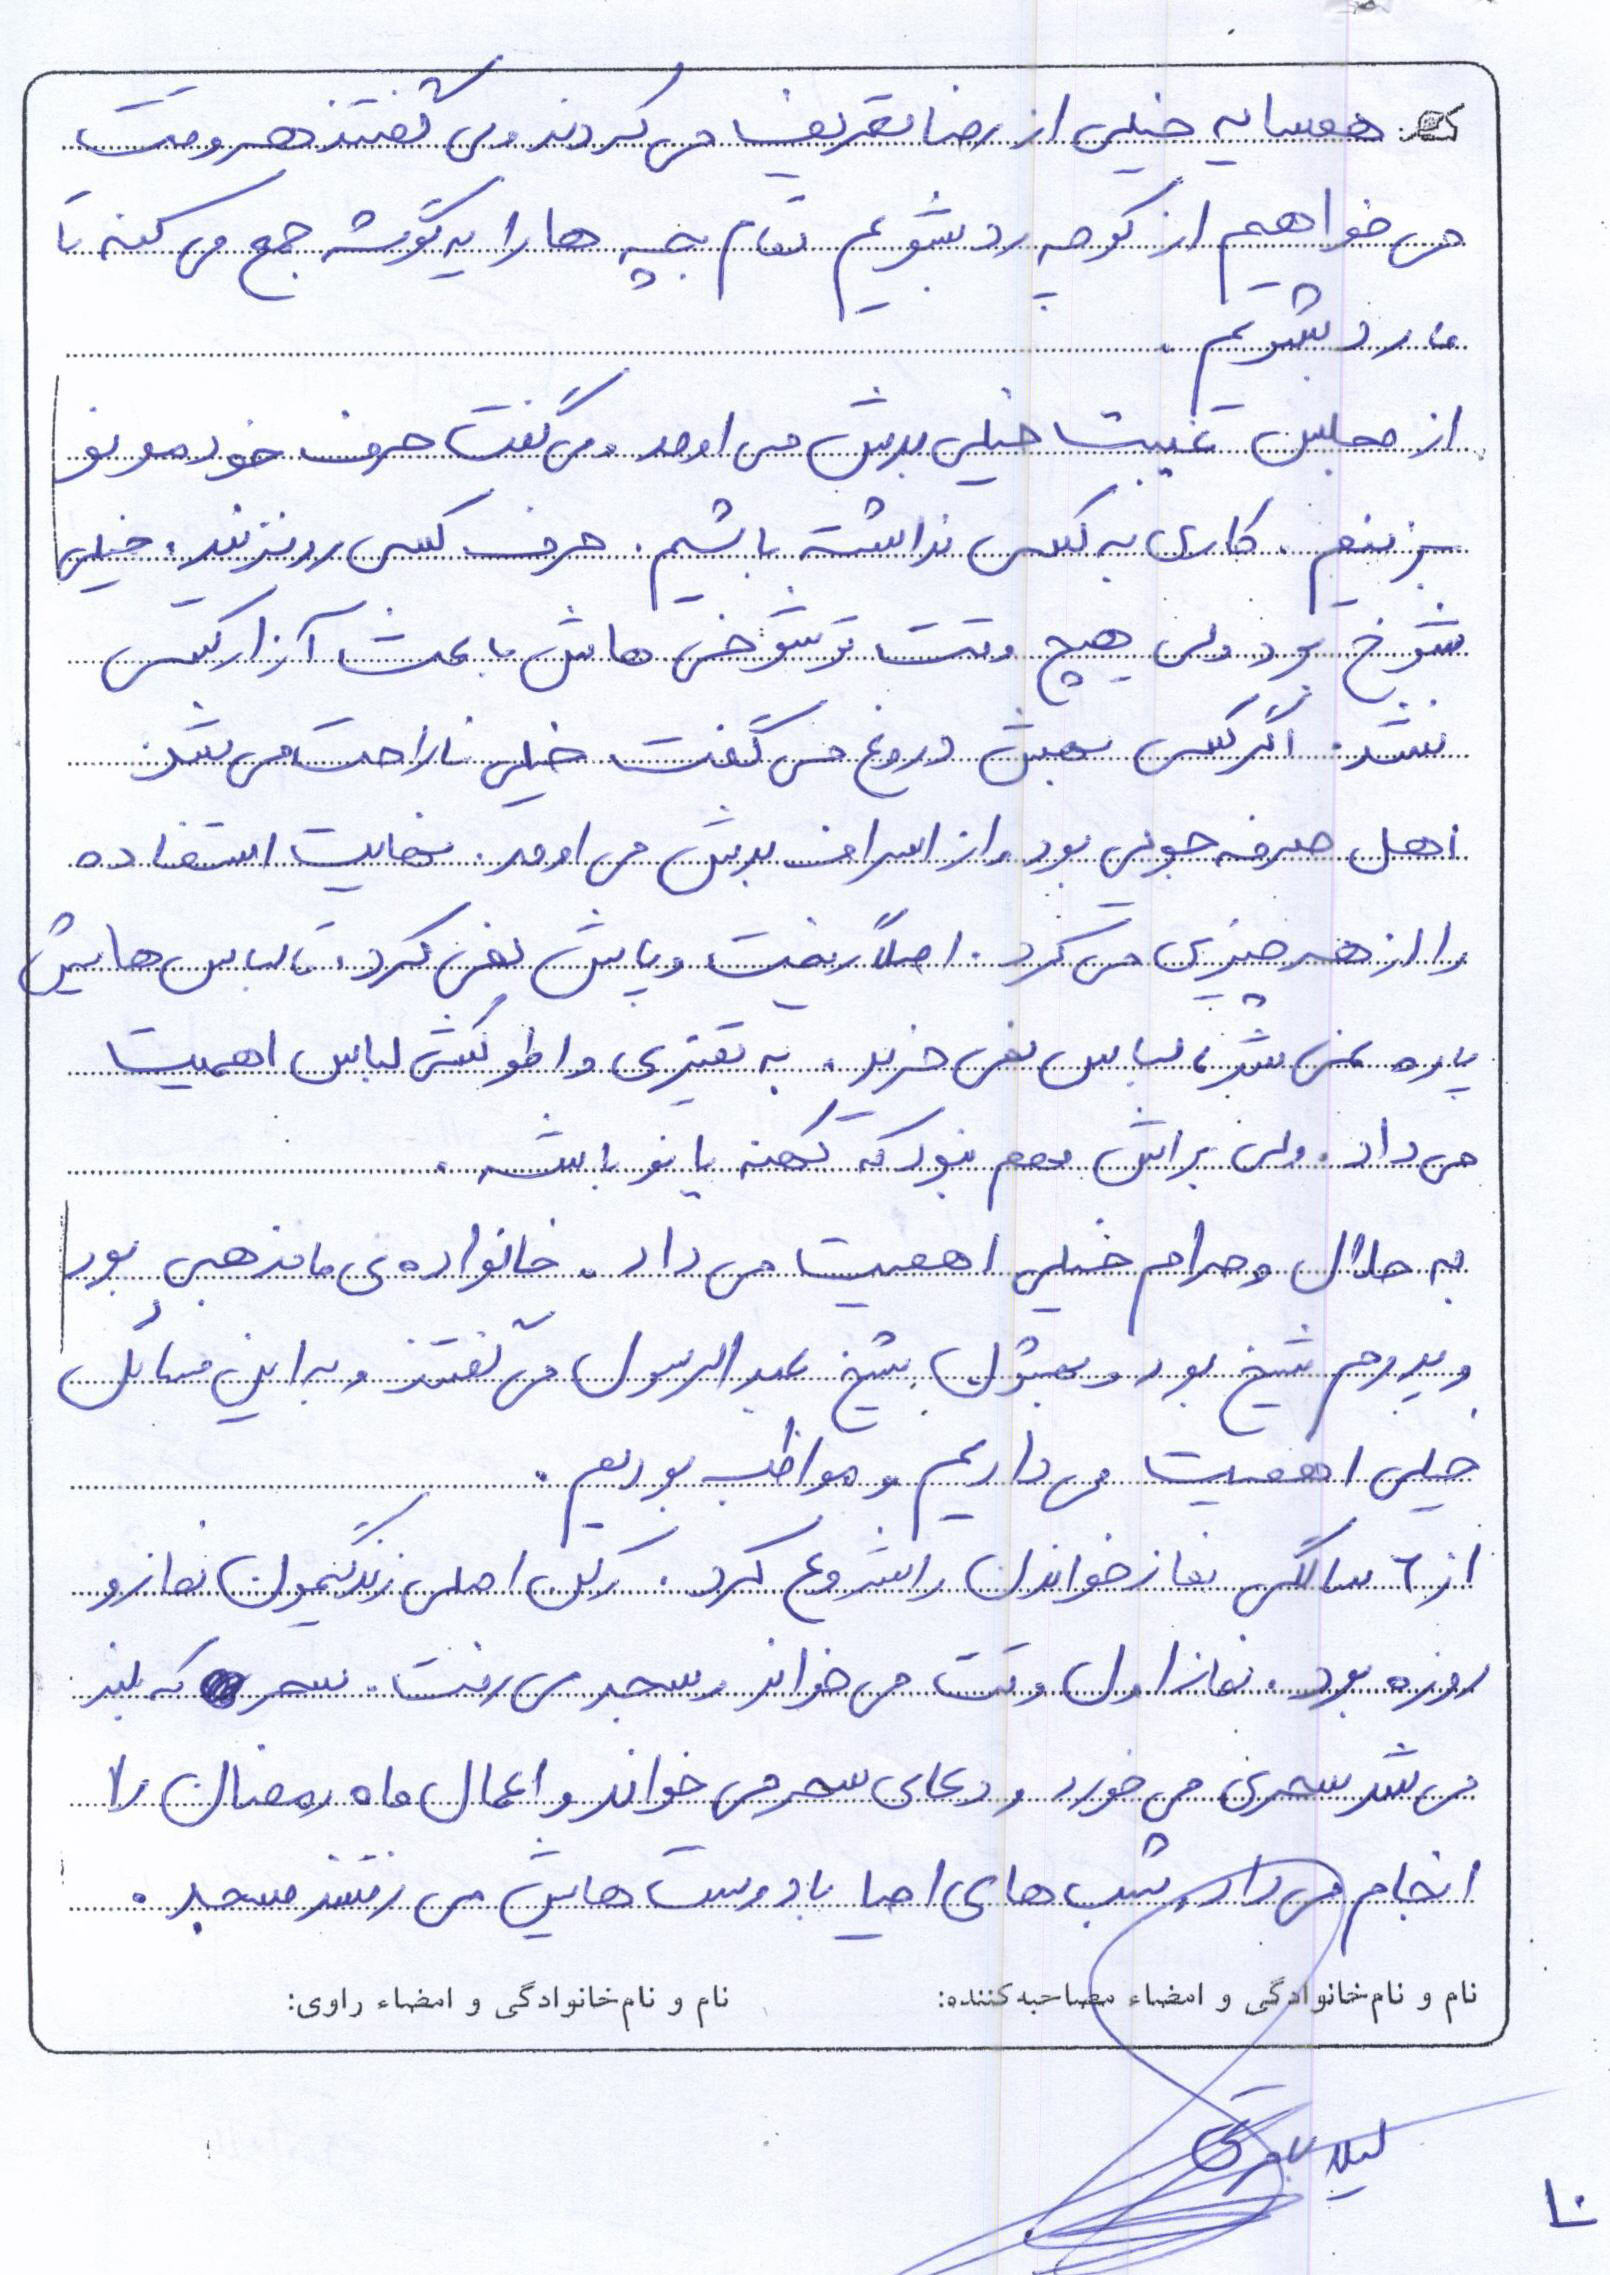 همسایه خیلی از رضا تعریف می کردند و می گفتند هر وقت
می خواهیم از کوچه رد بشویم تمام بچه ها را یه گوشه جمع می کنه تا
ما رد بشویم.
از مجلس غیبت خیلی بدش می اومد و می گفت حرف خودمونو
بزنیم. کاری به کسی نداشته باشیم. حرف کسی رو نزنید. خیلی
شوخ بود ولی هیچ وقت تو شوخی هاش باعث آزار کسی
نشد. اگر کسی بهش دروغ می گفت خیلی ناراحت می شد.
اهل صرفه جویی بود و از اسراف بدش می اومد. نهایت استفاده
را از هر چیزی می کرد. اصلاً ریخت و پاش نمی کرد. تا لباس هایش
پاره نمی شد، لباس نمی خرید. به تمیزی و اطو کشی لباس اهمیت
می داد. ولی براش مهم نبود که کهنه یا نو باشه.
به حلال و حرام خیلی اهمیت می داد. خانواده ی ما مذهبی بود
و پدرم شیخ بود و بهشون شیخ عبدالرسول می گفتند و به این مسائل
خیلی اهمیت می داریم و مواظب بودیم.
از ٦ سالگی نماز خواندن را شروع کرد. رکن اصلی زندگیمون نماز و
روزه بود. نماز اول وقت می خواند و مسجد می رفت. سحر که بلند
می شد سحری می خورد و دعای سحر می خواند و اعمال ماه رمضان را
انجام می داد. شب های احیا با دوست هایش می رفتند مسجد.
نام و نام خانوادگی و امضاء مصاحبه کننده: نام و نام خانوادگی و امضاء راوی:
لیلا